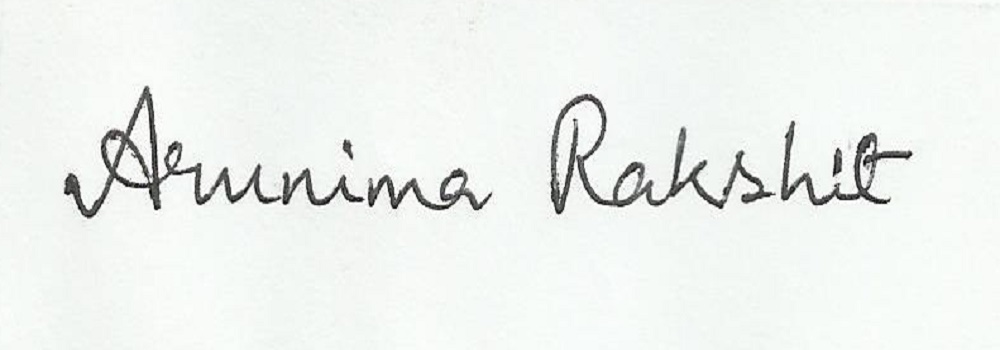 Arunima Rakshit